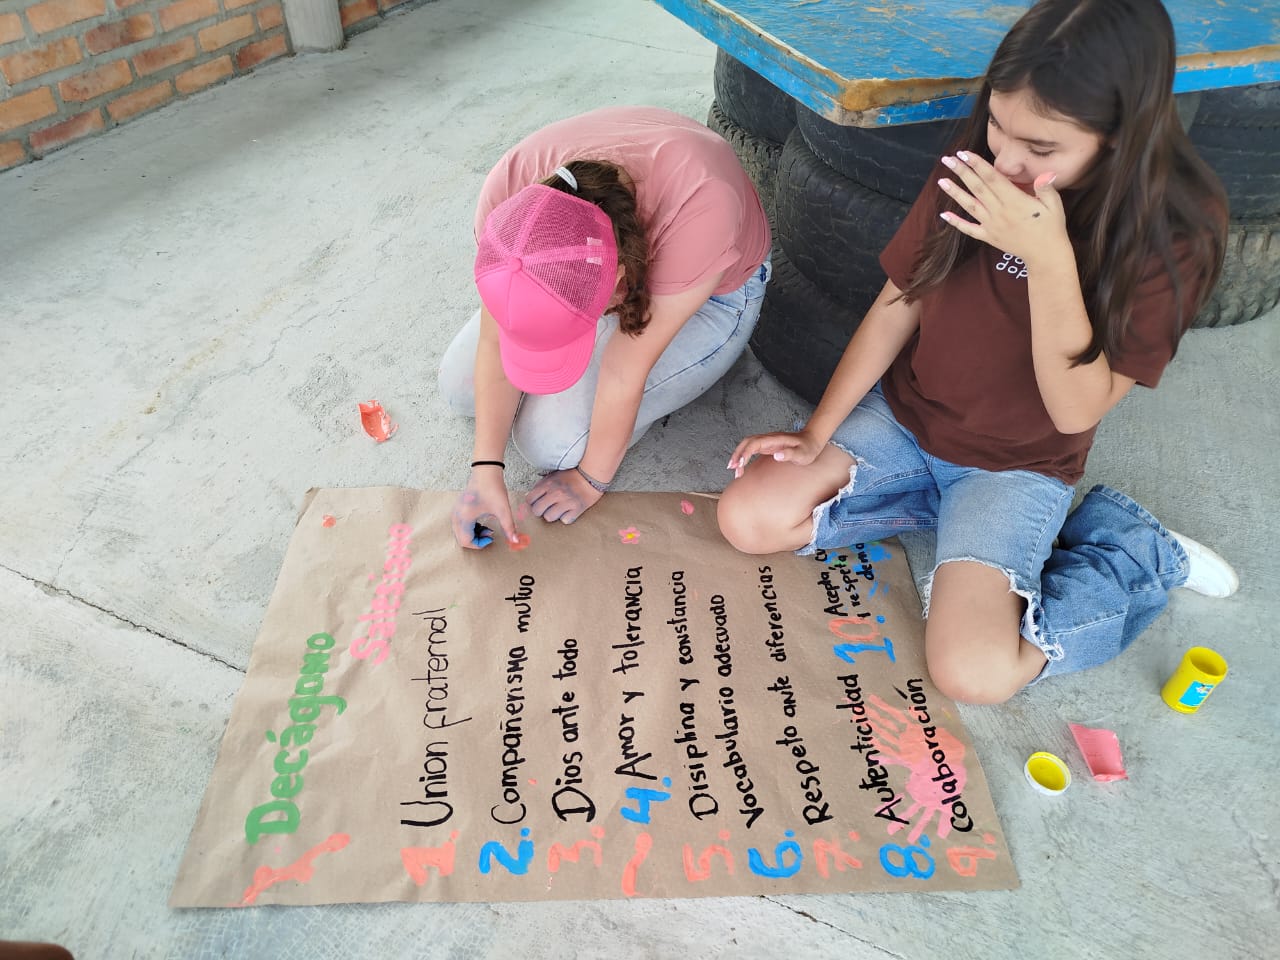 Decágono
Salesiano
1. Union fraternal
2. Compañerismo mutuo
3. Dios ante todo
4. Amor y tolerancia
5. Disiplina y constancia
6. Vocabulario adecuado
7. Respeto ante diferencias
8. Autenticidad
9. Colaboración
10. Acepta,
respeta
dop